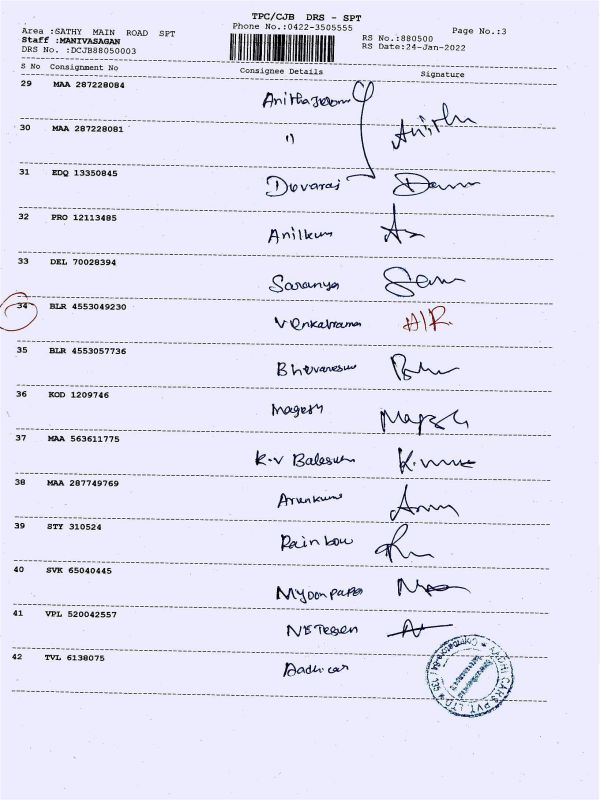 TPC/CJB DRS - SPT
Area :SATHY MAIN ROAD SPT
Phone No.:0422-3505555
Page No.:3
Staff :MANIVASAGAN
RS No.:880500
DRS No. :DCJB88050003
RS Date:24-Jan-2022
S No Consignment No Consignee Details Signature
29 MAA 287228084
30 MAA 287228081 "
31 EDQ 13350845 Devaraj
32 PRO 12113485 Anilkum
33 DEL 70028394 Saranya
34 BLR 4553049230 Venkatrama
35 BLR 4553057736 Bhuvaneswa
36 KOD 1209746 Magesh
37 MAA 563611775 K.V
38 MAA 287749769 Arunkum
39 STY 310524 Rainbow
40 SVK 65040445
41 VPL 520042557
42 TVL 6138075
CARS PVT LTD